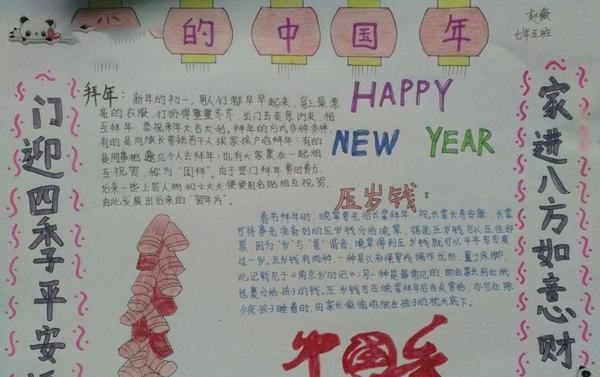 的中国年
赵薇
七年五班
门迎四季平安
家进八方如意财
HAPPY
NEW YEAR
拜年:
新年的初一,人们都早早起来,穿上最漂
亮的衣服,打扮得整整齐齐,出门去走亲访友,相
互拜年,恭祝来年大吉大利。拜年的方式多种多样,
有的是同族长带领若干人挨家挨户的拜年;有的
是同事相邀几个人去拜年;也有大家聚在一起相
互祝贺,称为“团拜”。由于登门拜年费时费力,
后来一些上层人物和士大夫便使用名贴相互祝贺,
由此发展出后来的“贺年片”。
压岁钱:
春节拜年时,晚辈要先给长辈拜年,祝长辈长寿安康,长辈
可将事先准备好的压岁钱分给晚辈,据说压岁钱可以压住邪
祟,因为“岁”与“祟”谐音,晚辈得到压岁钱就可以平平安安度
过一岁。压岁钱有两种,一种是以彩绳穿线编作龙形,置于床脚,
此记载见于《燕京岁时记》;另一种是最常见的,即由家长用红纸
包裹分给孩子的钱。压岁钱可在晚辈拜年后当众赏给,亦可在除
夕夜孩子睡着时,由家长偷偷地放在孩子的枕头底下。
中国年